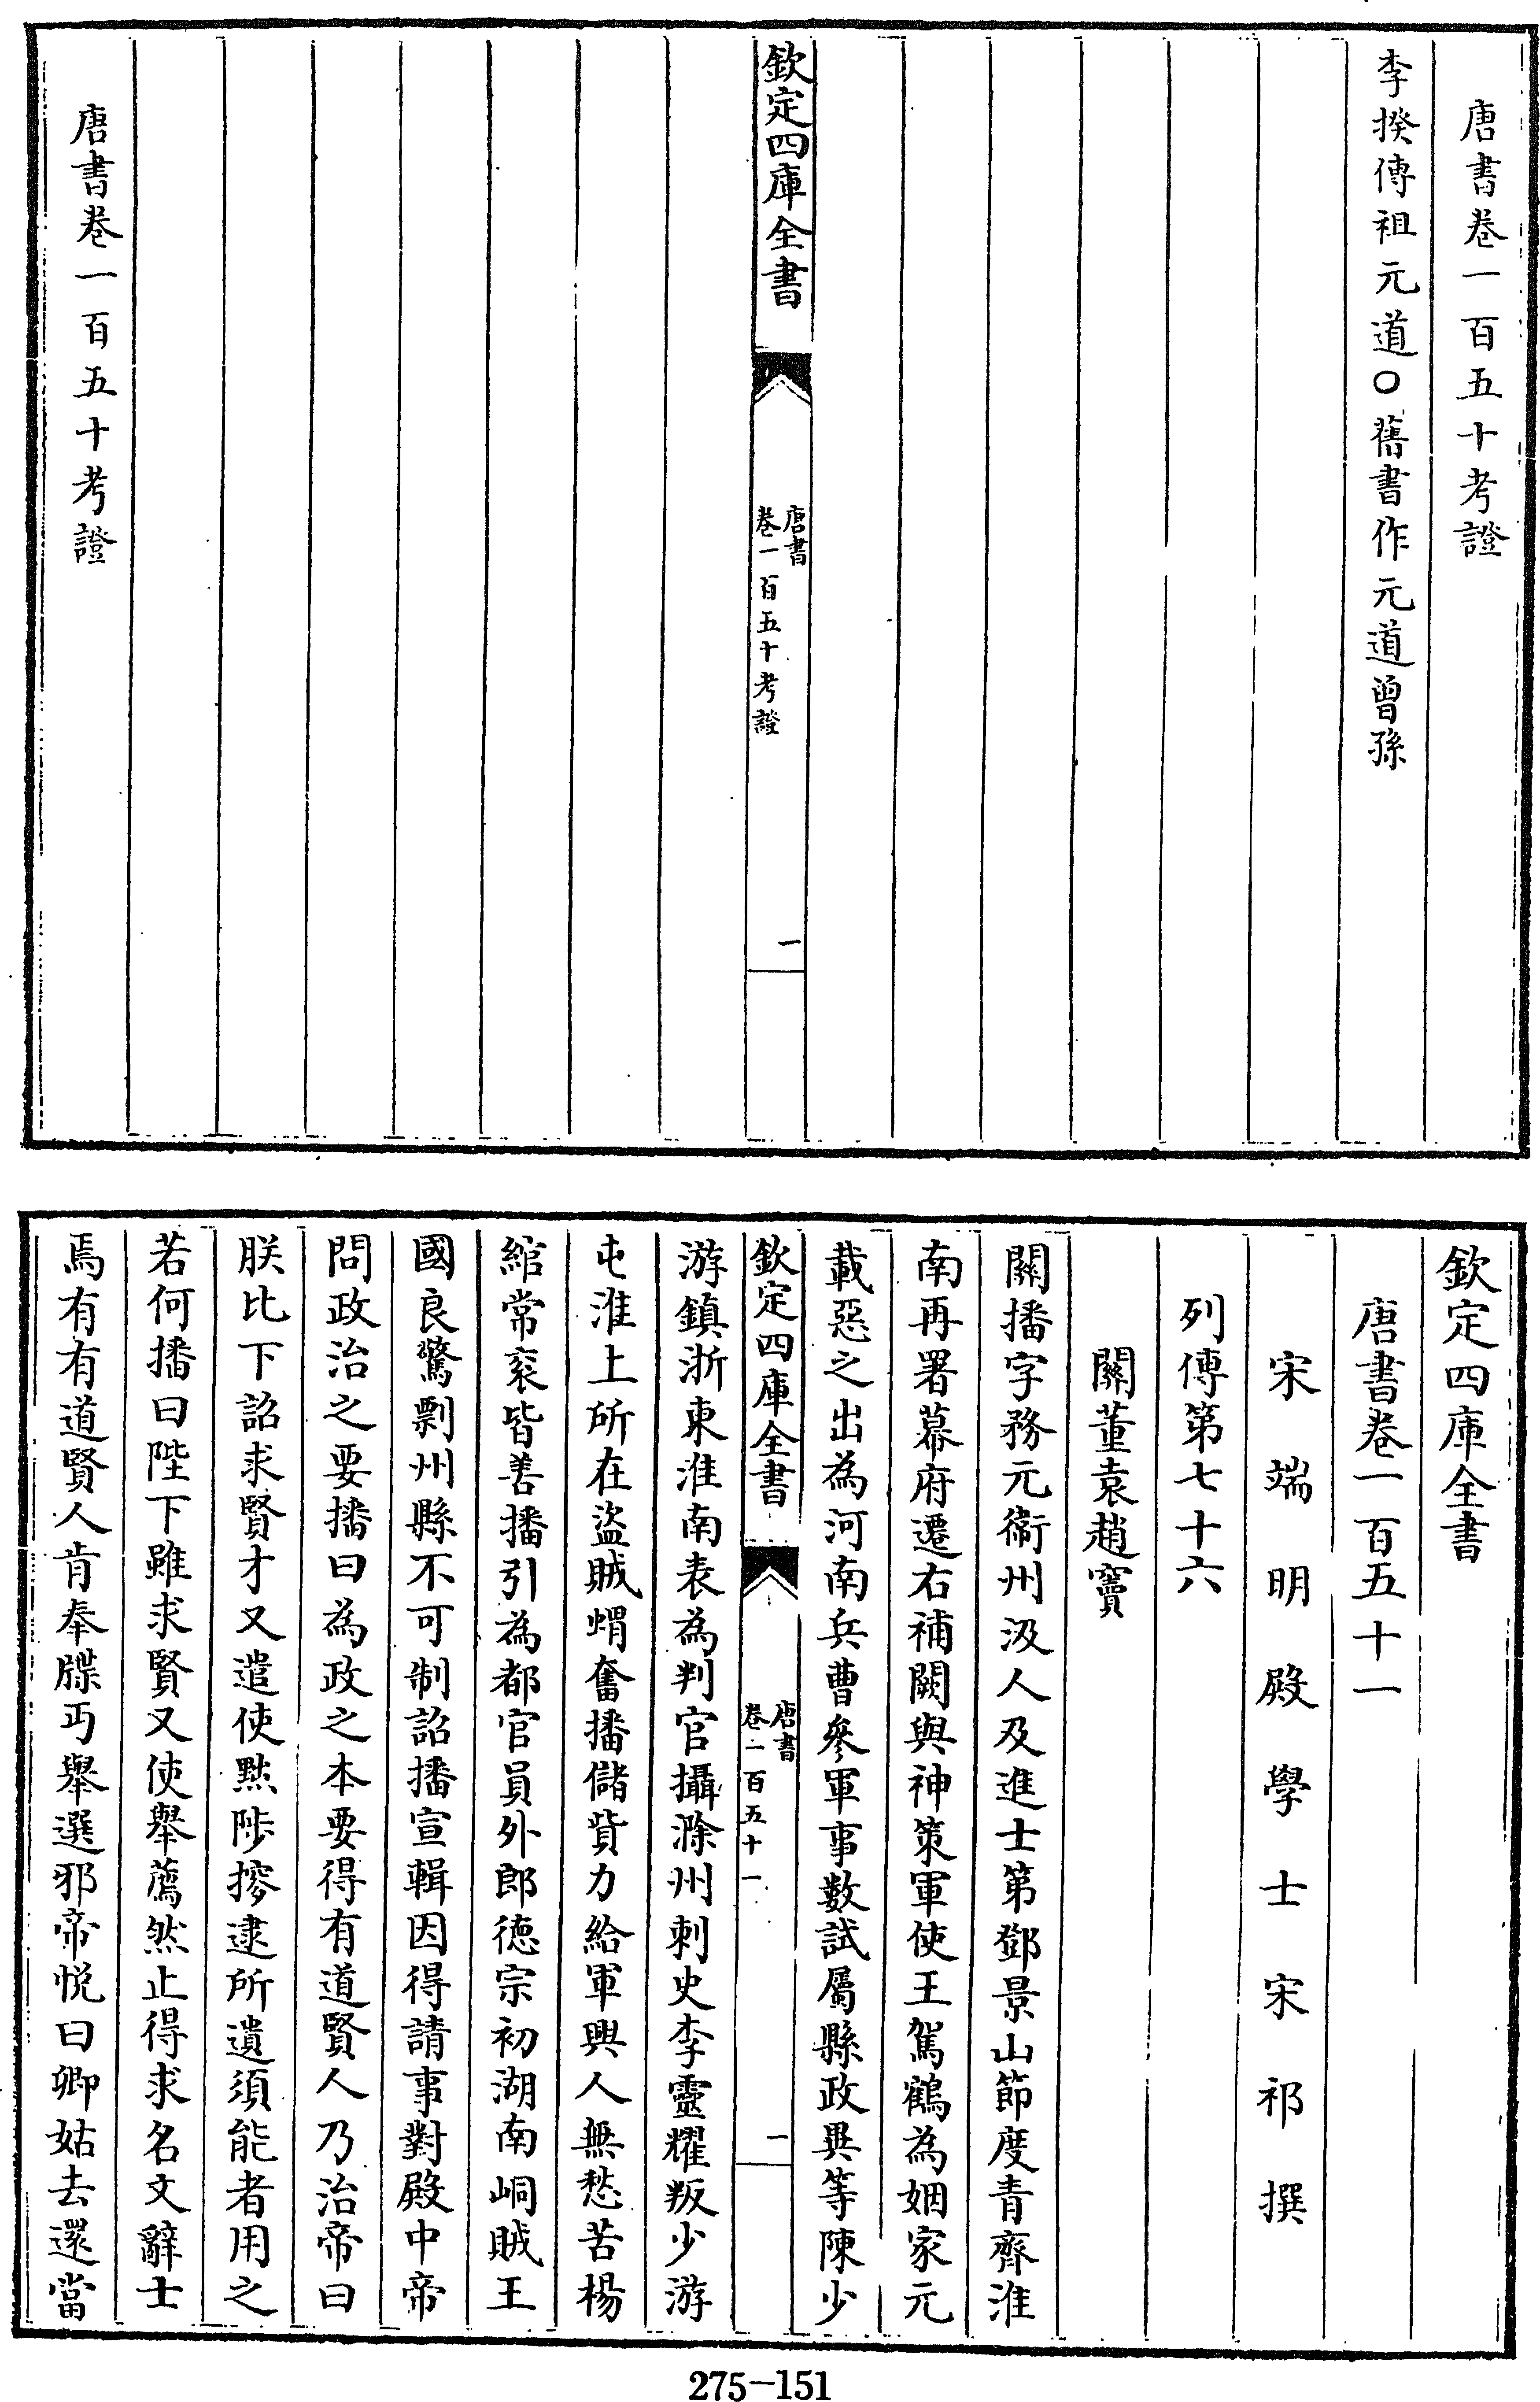 唐書卷一百五十考證
李揆傳祖元道○舊書作元道曾孫
欽定四庫全書
唐書
卷一百五十考證
一
唐書卷一百五十考證
欽定四庫全書
唐書卷一百五十一
宋端明殿學士宋祁撰
列傳第七十六
關董袁趙竇
關播字務元衞州汲人及進士第鄧景山節度青齊淮
南再署幕府遷右補闕與神策軍使王駕鶴為姻家元
載惡之出為河南兵曹參軍事數試屬縣政異等陳少
欽定四庫全書
唐書
卷一百五十一
一
游鎮浙東淮南表為判官攝滁州刺史李靈耀叛少游
屯淮上所在盜賊蝟奮播儲貲力給軍興人無愁苦楊
綰常袞皆善播引為都官員外郎德宗初湖南峒賊王
國良驚剽州縣不可制詔播宣輯因得請事對殿中帝
問政治之要播曰為政之本要得有道賢人乃治帝曰
朕比下詔求賢才又遣使黜陟搜逮所遺須能者用之
若何播曰陛下雖求賢又使舉薦然止得求名文辭士
焉有有道賢人肯奉牒丐舉選邪帝悅曰卿姑去還當
275-151